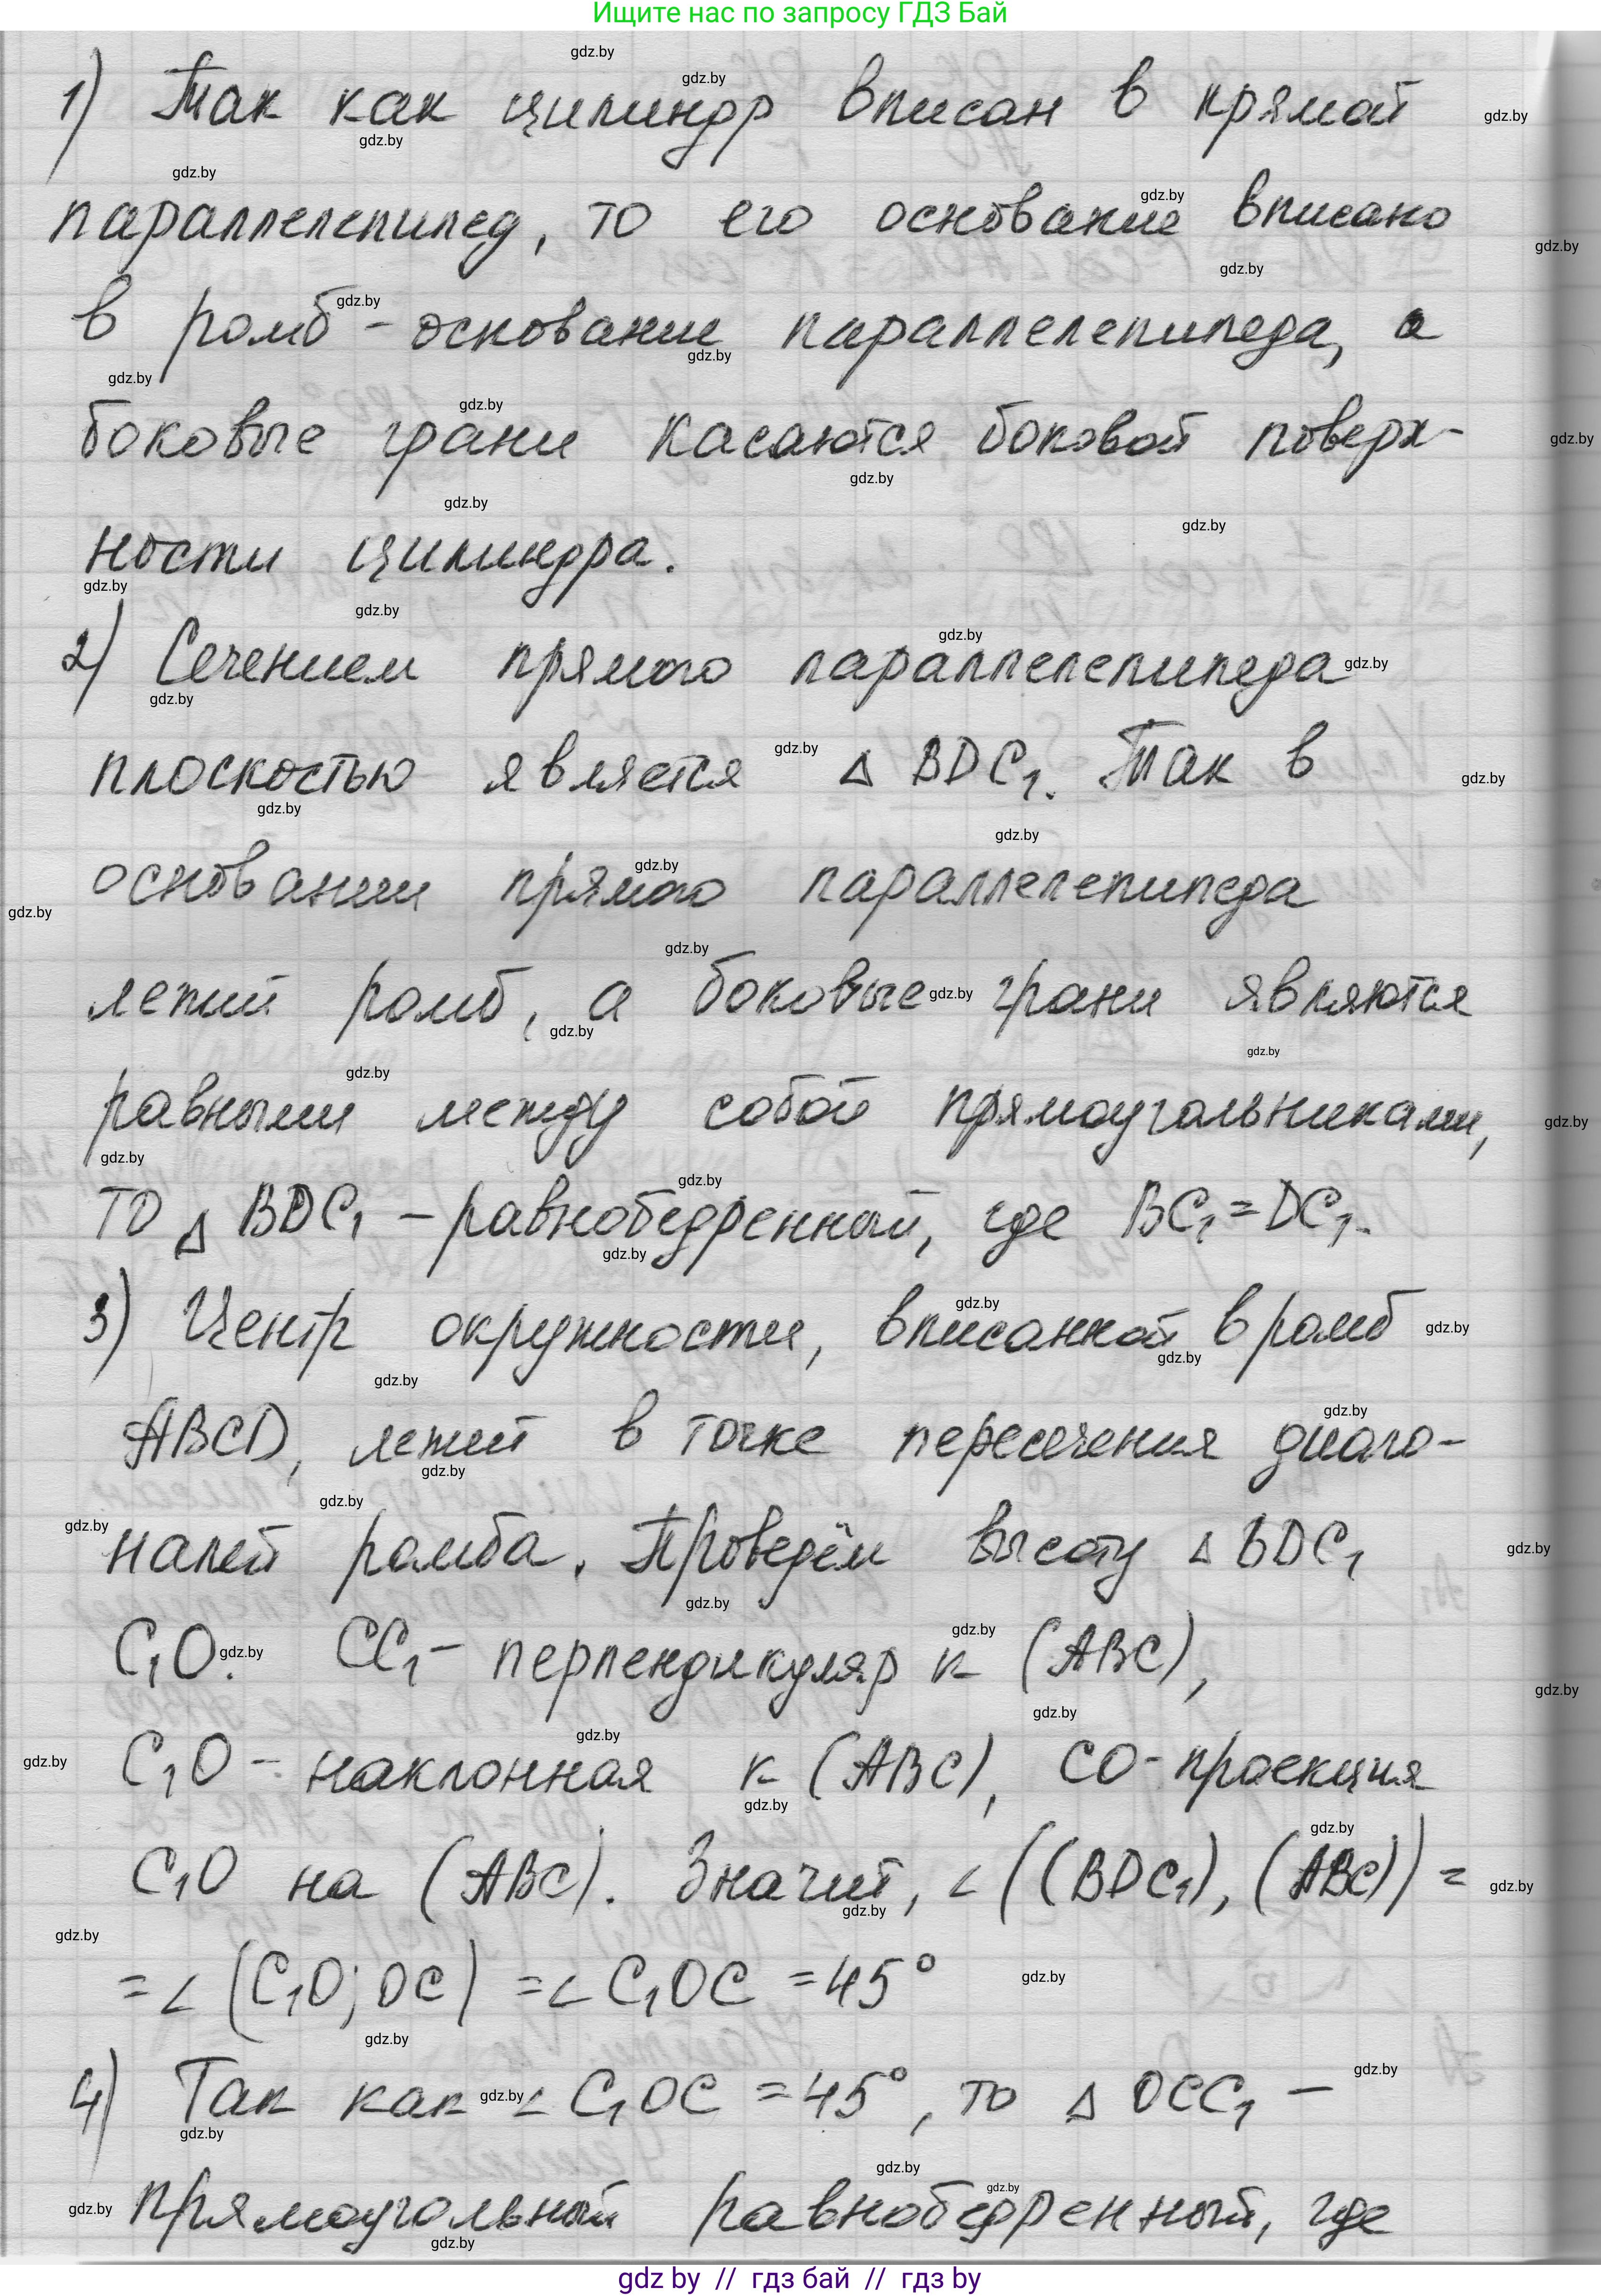 Ищите нас по запросу ГДЗ Бай
1) Так как цилиндр вписан в прямой
параллелепипед, то его основание вписано
в ромб - основание параллелепипеда, а
боковые грани касаются боковой поверх-
ности цилиндра.
2) Сечением прямого параллелепипеда
плоскостью является △ BDC₁. Так в
основании прямого параллелепипеда
лежит ромб, а боковые грани являются
равными между собой прямоугольниками,
то △ BDC₁ – равнобедренный, где BC₁ = DC₁.
3) Центр окружности, вписанной в ромб
ABCD, лежит в точке пересечения диаго-
налей ромба. Проведём высоту △ BDC₁
C₁O. CC₁ – перпендикуляр к (ABC),
C₁O – наклонная к (ABC), CO - проекция
C₁O на (ABC). Значит, ∠((BDC₁), (ABC)) =
= ∠(C₁O; OC) = ∠C₁OC = 45°
4) Так как ∠C₁OC = 45°, то △ OCC₁ –
прямоугольный равнобедренный, где
gdz by // гдз бай // гдз by